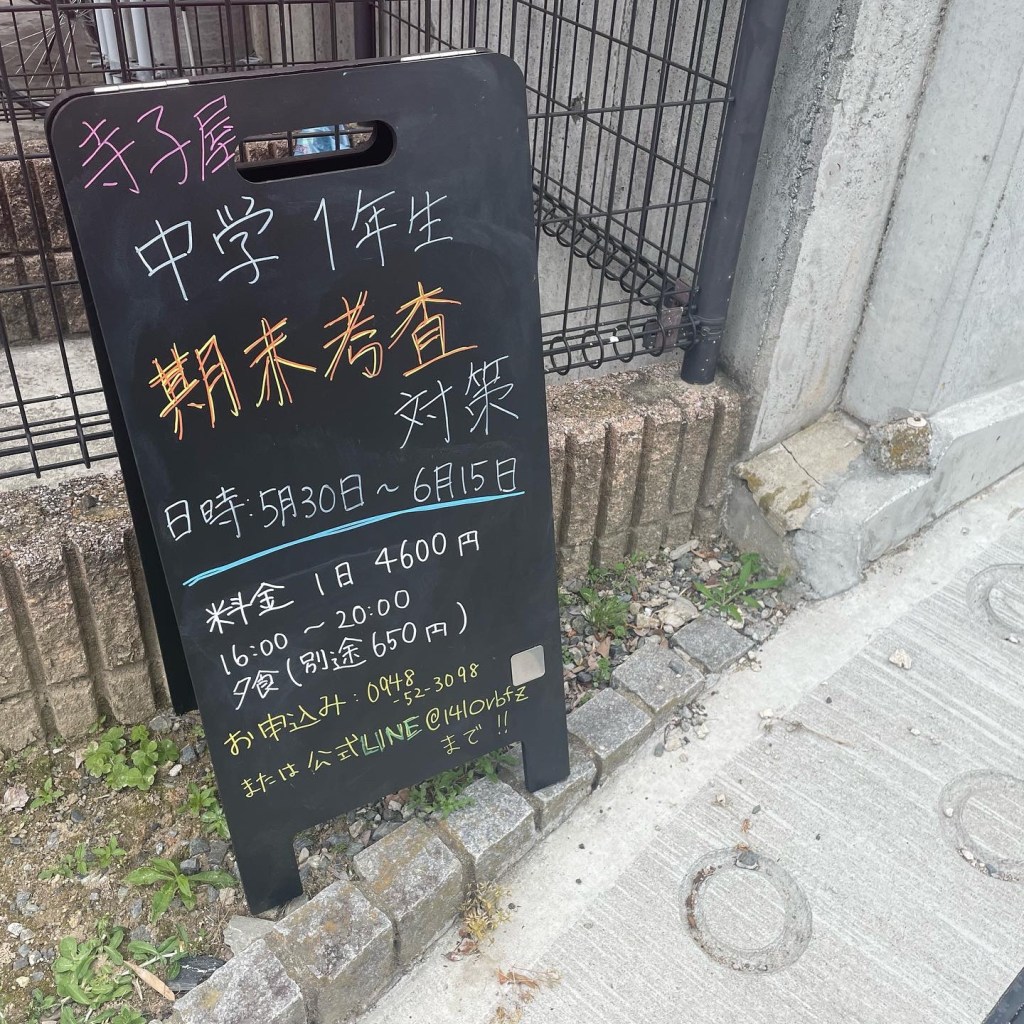 寺子屋
中学1年生
期末考査
対策
日時:5月30日~6月15日
料金 1日 4600円
16:00~20:00
夕食(別途650円)
お申込み:0948
-52-3098
または公式LINE@141orbfz
まで!!